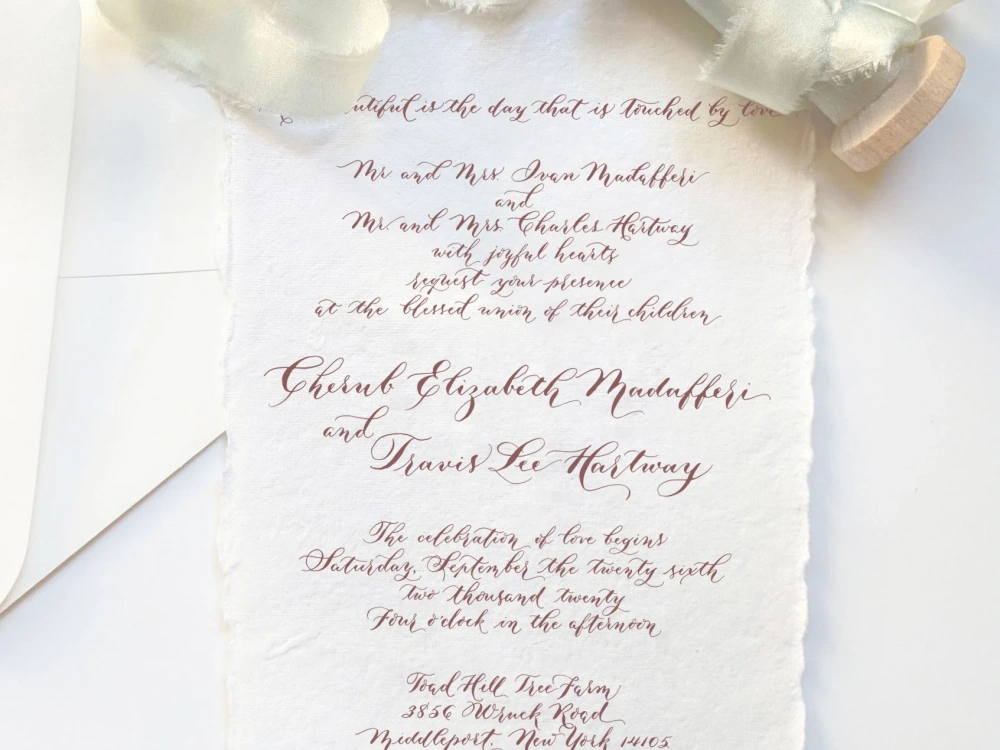 is the day that is touched by love
Mr and Mrs. Ivan Madafferi
and
Mr. and Mrs. Charles Hartway
with joyful hearts
request your presence
at the blessed union of their children
Cherub Elizabeth Madafferi
and
Travis Lee Hartway
The celebration of love begins
Saturday, September the twenty sixth
two thousand twenty
Four o'clock in the afternoon
Toad Hill Tree Farm
3856 Wruck Road
Middleport, New York 14105